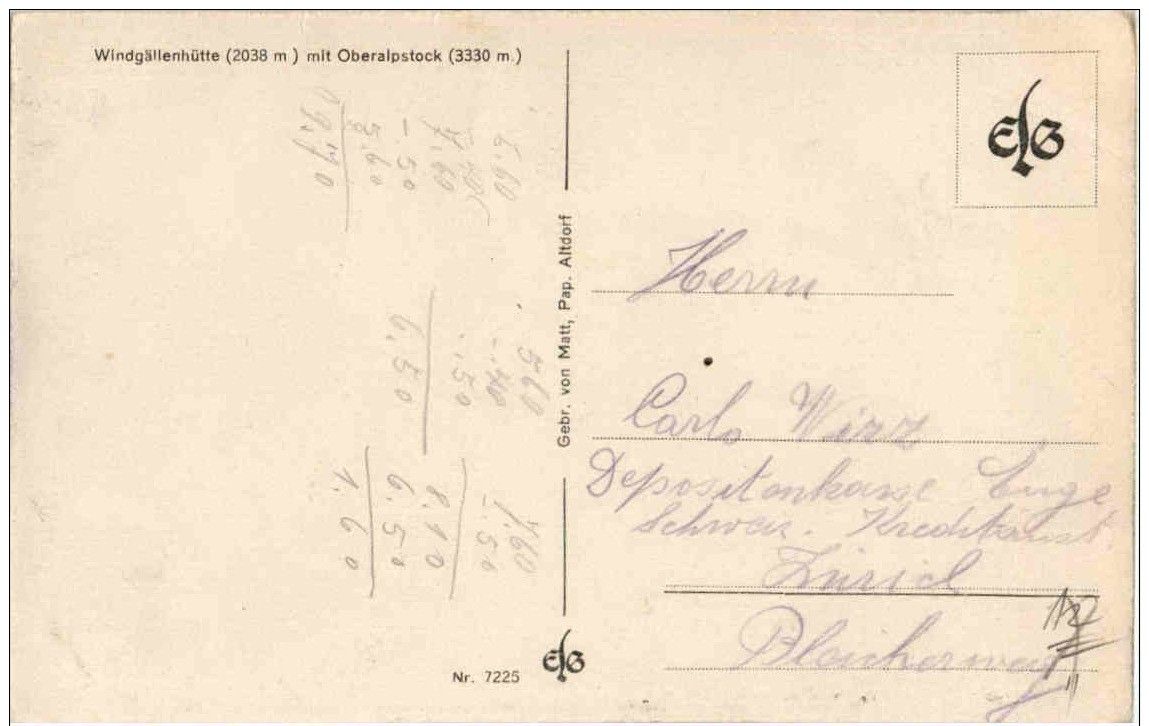 Windgällenhütte (2038 m ) mit Oberalpstock (3330 m.)
6.60
7.60
- 50
5.60
5 60
-.40
-.50
6.50
7.60
-.50
8.10
6.50
1.60
Gebr. von Matt, Pap. Altdorf
Nr. 7225
Herrn
Carlo Wirz
Depositenkasse Enge
Schweiz. Kreditanst.
Zürich
Bleicherweg